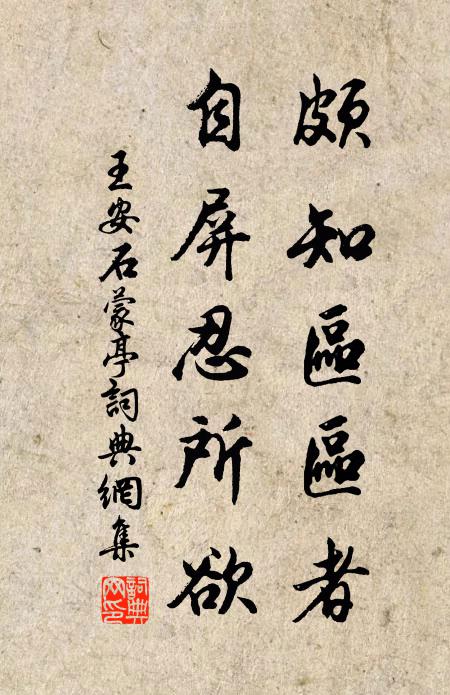 頗知區區者
自屏忍所欲
王安石蒙亭詞典網集
詞典網印